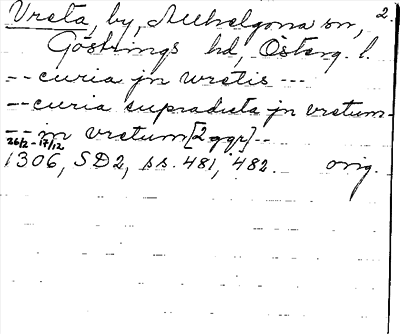 Vreta, by, Mikelgona sn, 2.
Göstrings hd, Österg. l.
-- curia jn wretis ---
-- curia supradicta jn vretum -
-- in vretum [2 ggr] --
26/2 - 17/12
1306, SD2, ss. 481, 482. orig.